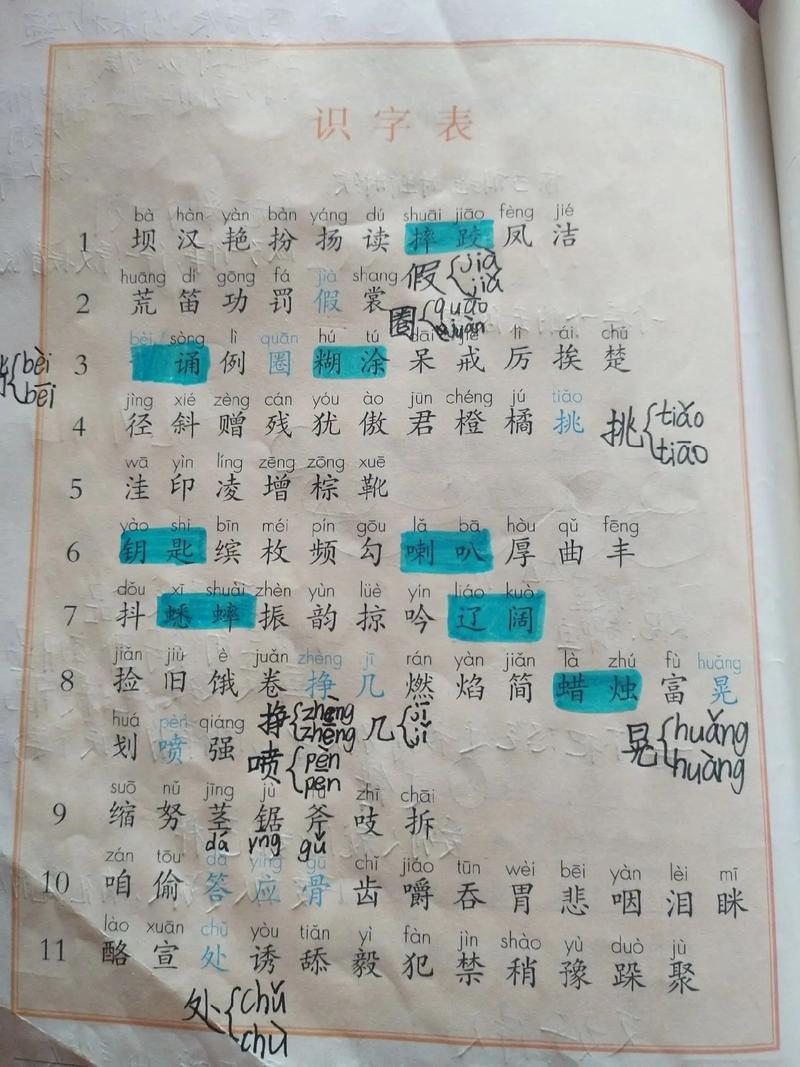 识字表
bà hàn yàn bàn yáng dú shuāi jiāo fèng jié
1 坝 汉 艳 扮 扬 读 摔 跤 凤 洁
huāng dí gōng fá jià shang
2 荒 笛 功 罚 假 裳
假 jià jiǎ
圈
bèi sòng lì quān hú tú dāi jiè lì ái chǔ
3 诵 例 圈 糊 涂 呆 戒 厉 挨 楚
bèi bēi
jìng xié zèng cán yóu ào jūn chéng jú tiāo
4 径 斜 赠 残 犹 傲 君 橙 橘 挑
挑 tiǎo tiāo
wā yìn líng zēng zōng xuē
5 洼 印 凌 增 棕 靴
yào shi bīn méi pín gōu lǎ bā hòu qǔ fēng
6 钥 匙 缤 枚 频 勾 喇 叭 厚 曲 丰
dǒu xī shuài zhèn yùn lüè yín liáo kuò
7 抖 蟋 蟀 振 韵 掠 吟 辽 阔
jiǎn jiù è juǎn zhèng jī rán yàn jiǎn là zhú fù huǎng
8 捡 旧 饿 卷 挣 几 燃 焰 简 蜡 烛 富 晃
huá pèn qiáng
划 喷 强
挣 zhèng zhēng
几 jī jǐ
喷 pèn pēn
晃 huǎng huàng
suō nǔ jīng jù fǔ zhī chāi
9 缩 努 茎 锯 斧 吱 拆
dá yìng gǔ
zán tōu dā yìng gǔ chǐ jiáo tūn wèi bēi yàn lèi mī
10 咱 偷 答 应 骨 齿 嚼 吞 胃 悲 咽 泪 眯
lào xuān chǔ yòu tiǎn yì fàn jìn shào yù duò jù
11 酪 宣 处 诱 舔 毅 犯 禁 稍 豫 跺 聚
处 chǔ chù